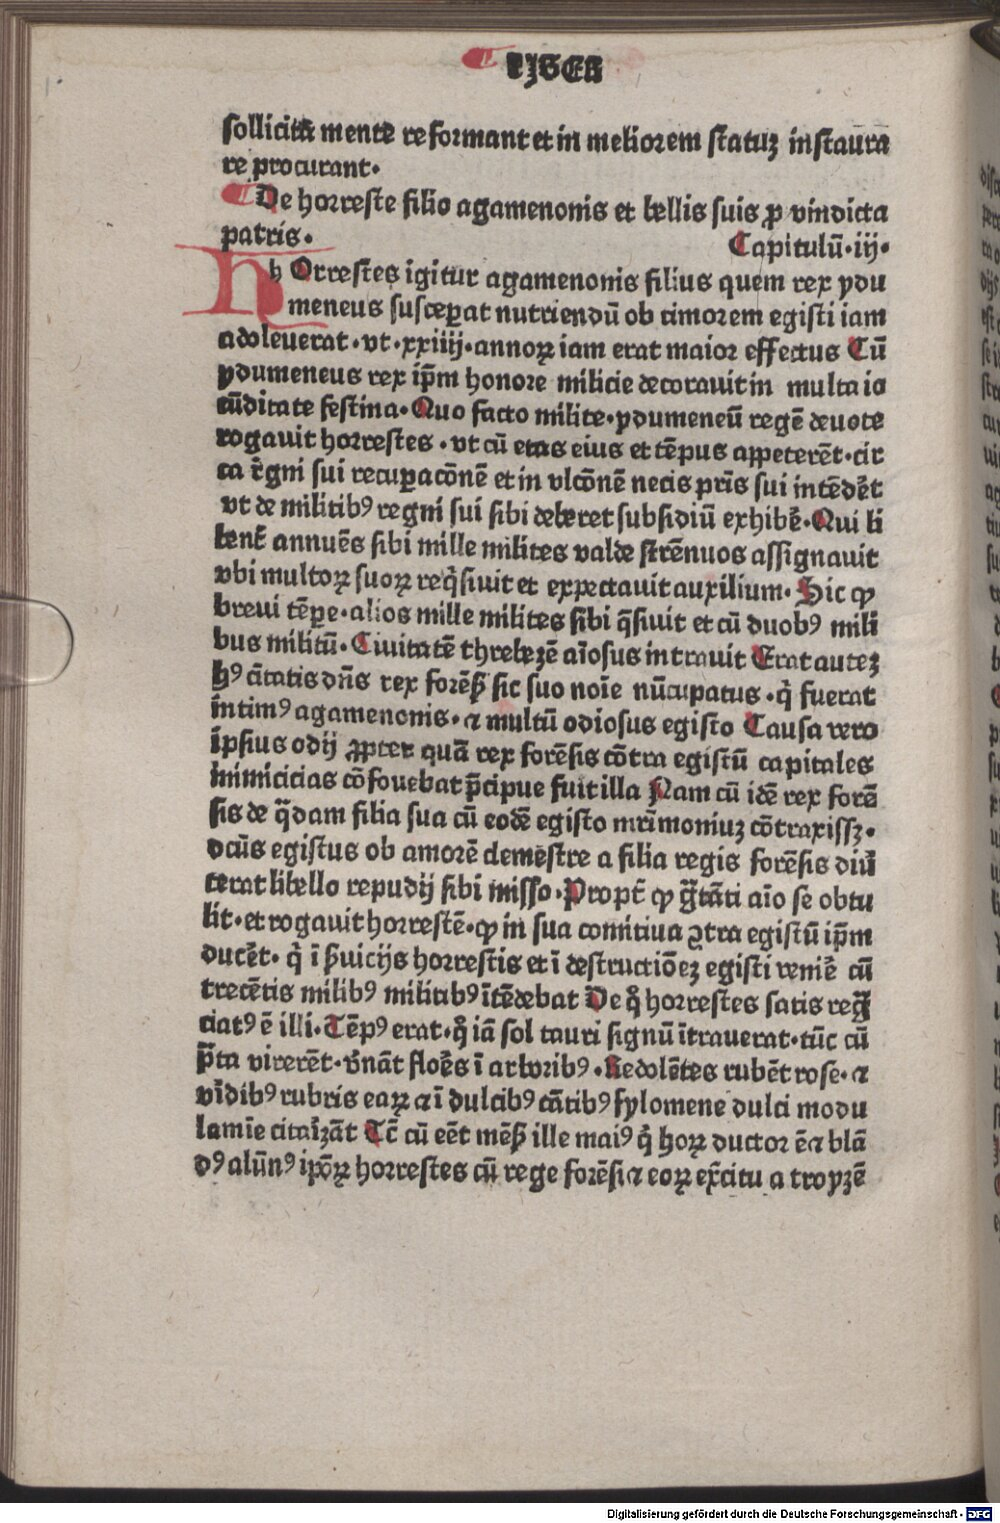 LIBER
sollicita mente reformant et in meliorem statuꝫ instaura
re procurant·
De horreste filio agamenonis et bellis suis ꝓ vindicta
patris· Capitulū·iij·
h Orrestes igitur agamenonis filius quem rex ydu
meneus susceꝑat nutriendū ob timorem egisti iam
adoleuerat·vt·xxiiij·annoꝝ iam erat maior effectus Cū
ydumeneus rex ip̄m honore milicie decorauit in multa io
cūditate festina·Quo facto milite·ydumeneū regē deuote
rogauit horrestes·vt cū etas eius et tēpus appeterēt·cir
ca r̄gni sui recuꝑacōnē et in vlcōnē necis pr̄is sui intēdēt
vt de militibꝰ regni sui sibi deberet subsidiū exhibē·Qui li
bent̄ annuēs sibi mille milites valde strēnuos assignauit
vbi multoꝝ suoꝝ req̄siuit et expectauit auxilium·Sic ꝙ
breui tēꝑe·alios mille milites sibi q̄siuit et cū duobꝰ mili
bus militū·Ciuitatē threbezē aīosus intrauit Erat auteꝫ
hꝰ cītatis dn̄s rex forēs̄ sic suo noīe nūcupatus·q̄ fuerat
intimꝰ agamenonis·⁊ multū odiosus egisto Causa vero
ip̄sius odij ꝓpter quā rex forēsis cōtra egistū capitales
inimicicias cōfouebat p̄cipue fuit illa Nam cū idē rex forē
sis de q̄dam filia sua cū eodē egisto mr̄imoniuꝫ cōtraxissꝫ·
dcūs egistus ob amorē demestre a filia regis forēsis diū
terat libello repudij sibi misso·Propt̄ ꝙ g̃tāti aīo se obtu
lit·et rogauit horrestē·ꝙ in sua comitiua ꝯtra egistū ip̄m
ducēt·q̄ ī p̄uicijs horrestis et ī destructiōeꝫ egisti veniē cū
trecētis milibꝰ militibꝰ ītēdebat De q̄ horrestes satis reg̃
ciatꝰ ē illi·Tēpꝰ erat·q̄ iā sol tauri signū ītrauerat·tūc cū
p̄ta virerēt·v̄nāt floēs ī arboribꝰ·Redolētes rubēt rose·⁊
vīdibꝰ rubris eaꝝ ⁊ ī dulcibꝰ cātibꝰ fylomene dulci modu
lamīe citaīzāt Tc̄ cū eēt mēs̄ ille maiꝰ q̄ hoꝝ ductor ē⁊ blā
dꝰ alūnꝰ ip̄oꝝ horrestes cū rege forēsi ⁊ eoꝝ ex̄citu a troyzē
Digitalisierung gefördert durch die Deutsche Forschungsgemeinschaft - DFG